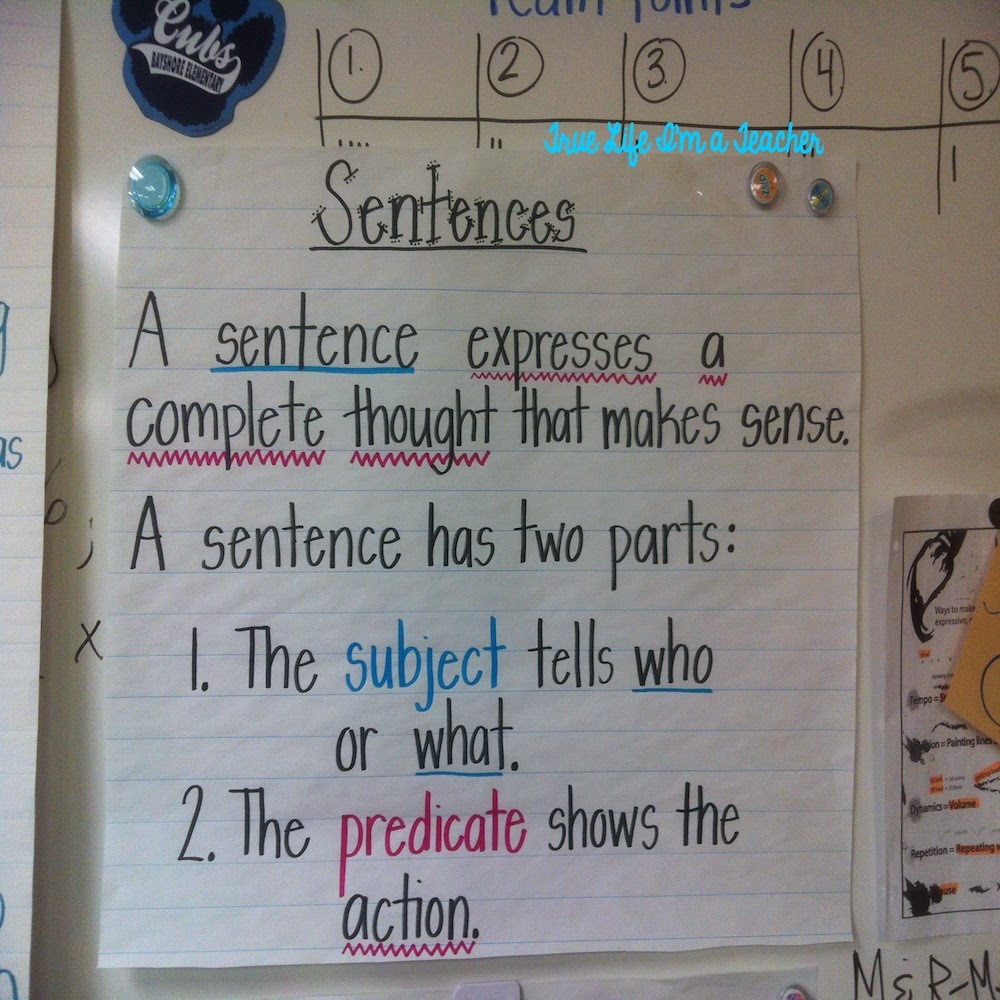 Cubs
BAYSHORE ELEMENTARY
Team Points
1. 2 3. 4 5.
True Life I'm a Teacher
Sentences
A sentence expresses a
complete thought that makes sense.
A sentence has two parts:
1. The subject tells who
or what.
2. The predicate shows the
action.
as
x
Ways to make
expressive,
Tempo =
= Painting lines
Dynamics = Volume
Repetition = Repeating